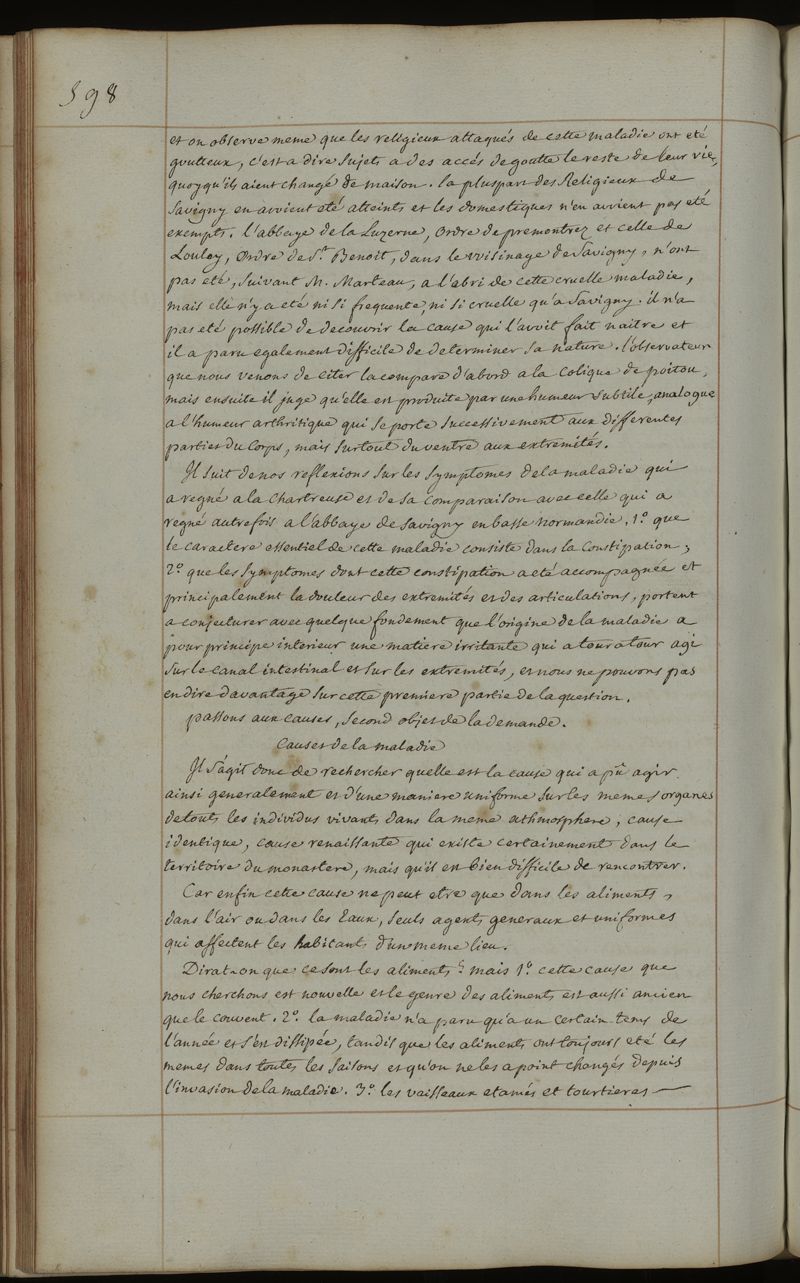 598
et on observe meme que les religieux attaqués de cette maladie ont eté
goutteux, c'est a dire sujets a des accés de goutte le reste de leur vie,
quoyqu'ils aient changé de maison. la pluspart des Religieux de
Savigny en avoient eté atteints et les domestiques n'en avoient pas eté
exempts. l'abbaye de la Luzerne, Ordre de premontrez et celle de
Louloy, Ordre de St. Benoit, dans le voisinage de Savigny, n'ont
pas eté, suivant M. Marteau, a l'abri de cette cruelle maladie,
mais elle n'y a eté ni si frequente, ni si cruelle qu'a Savigny. il n'a
pas eté possible de decouvrir la cause qui l'avoit fait naitre et
il a paru egalement difficile de determiner sa nature. l'observateur
que nous venons de citer la compare d'abord a la colique de poitou,
mais ensuite il juge qu'elle est produite par une humeur subtile, analogue
a l'humeur arthritique qui se porte successivement aux differentes
parties du corps, mais surtout du ventre aux extremités.
Il suit de nos reflexions sur les symptomes de la maladie qui
a regné a la chartreuse et de sa comparaison avec celle qui a
regné autrefois a l'abbaye de Savigny en basse normandie, 1.° que
le caractere essentiel de cette maladie consiste dans la constipation;
2.° que les symptomes dont cette constipation a eté accompagnée et
principalement la douleur des extremités et des articulations, portent
a conjecturer avec quelque fondement que l'origine de la maladie a
pour principe interieur une matiere irritante qui a tour a tour agi
sur le canal intestinal et sur les extremités, et nous ne pouvons pas
en dire davantage sur cette premiere partie de la question.
passons aux causes, second objet de la demande.
Causes de la maladie
Il s'agit donc de rechercher quelle est la cause qui a pû agir
ainsi generalement et d'une maniere uniforme sur les memes organes
de touts les individus vivants dans la meme athmosphere, cause
identique, cause renaissante qui existe certainement dans le
territoire du monastere, mais qu'il est bien difficile de rencontrer.
Car enfin cette cause ne peut etre que dans les aliments,
dans l'air ou dans les Eaux, seuls agents generaux et uniformes
qui affectent les habitants d'un meme lieu.
Dirat-on que ce sont les aliments? mais 1.° cette cause que
nous cherchons est nouvelle et le genre des aliments est aussi ancien
que le couvent. 2.° la maladie n'a paru qu'a un certain tems de
l'année et s'est dissipée, tandis que les aliments ont toujours eté les
memes dans toutes les saisons et qu'on ne les a point changés depuis
l'invasion de la maladie. 3.° les vaisseaux etamés et tourtieres